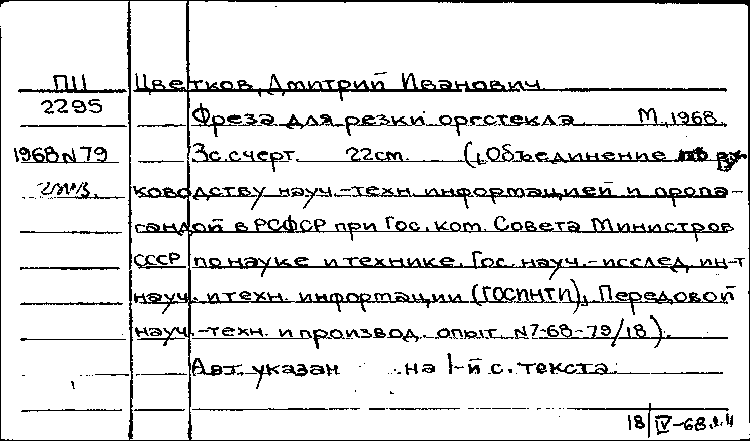 ПЦ Цветков, Дмитрий Иванович
2295 Фреза для резки оргстекла М., 1968.
1968 N 79 3с. с черт. 22 cm. (Объединение по ру
ководству науч.-техн. информацией и пропа-
гандой в РСФСР при Гос. ком. Совета Министров
СССР по науке и технике. Гос. науч.-исслед. ин-т
науч. и техн. информации (ГОСИНТИ), Передовой
науч.-техн. и производ. опыт. N7-68-79/18).
Авт. указан на 1-й с. текста.
18/IV-68